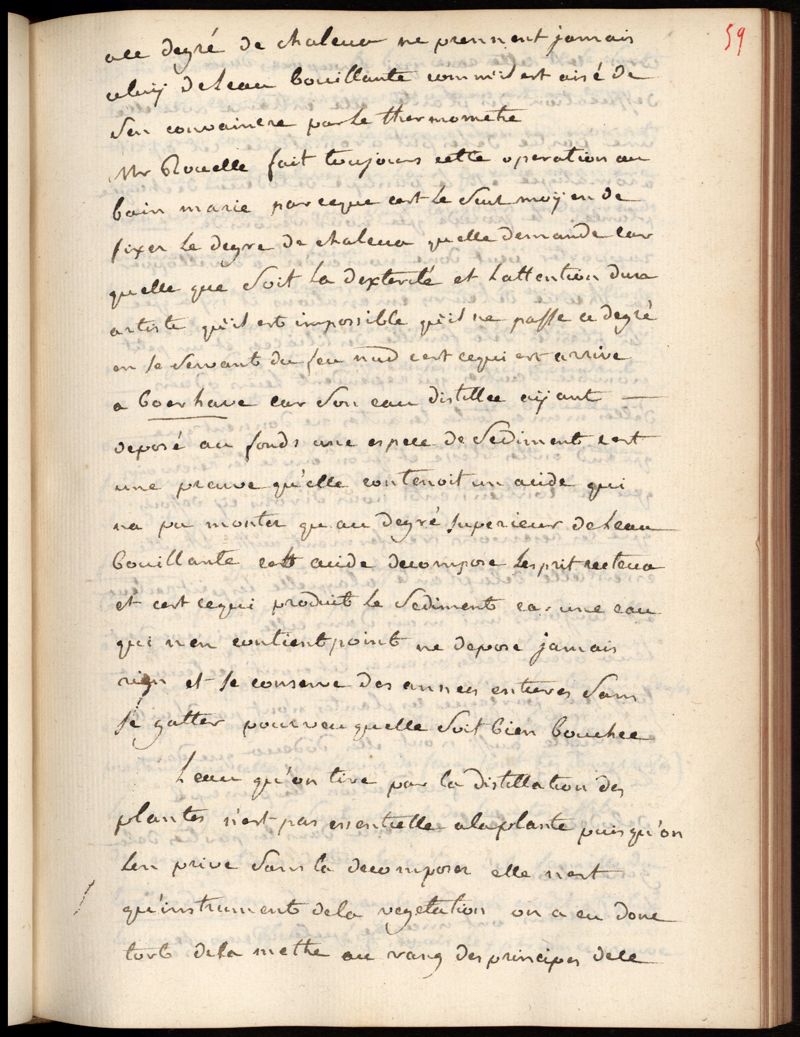 59
ace degré de chaleur ne prennent jamais
celuy deleau bouillante comm'il est aisé de
s'en convaincre par le thermometre
Mr Rouelle fait toujours cette operation au
bain marie parceque cest le seul moÿen de
fixer le degre de chaleur quelle demande car
quelle que soit la dexterité et lattention dun
artiste qu'il est impossible qu'il ne passe ce degré
en se servant du feu nud cest cequi est arrive
a boerhave car son eau distillee aÿant
deposé au fonds une espece de sediment cest
une preuve qu'elle contenoit un acide qui
na pu monter qu'au degré superieur deleau
bouillante cest acide decompose lesprit recteur
et cest cequi produit le sediment car une eau
qui n'en contient point ne depose jamais
rien et se conserve des annees entieres sans
se gatter pourveu quelle soit bien bouchee
Leau qu'on tire par la distillation des
plantes n'est pas essentielle alaplante puisqu'on
len prive sans la decomposer elle nest
qu'instrument dela vegetation on a eu donc
tort dela mettre au rang des principes dele